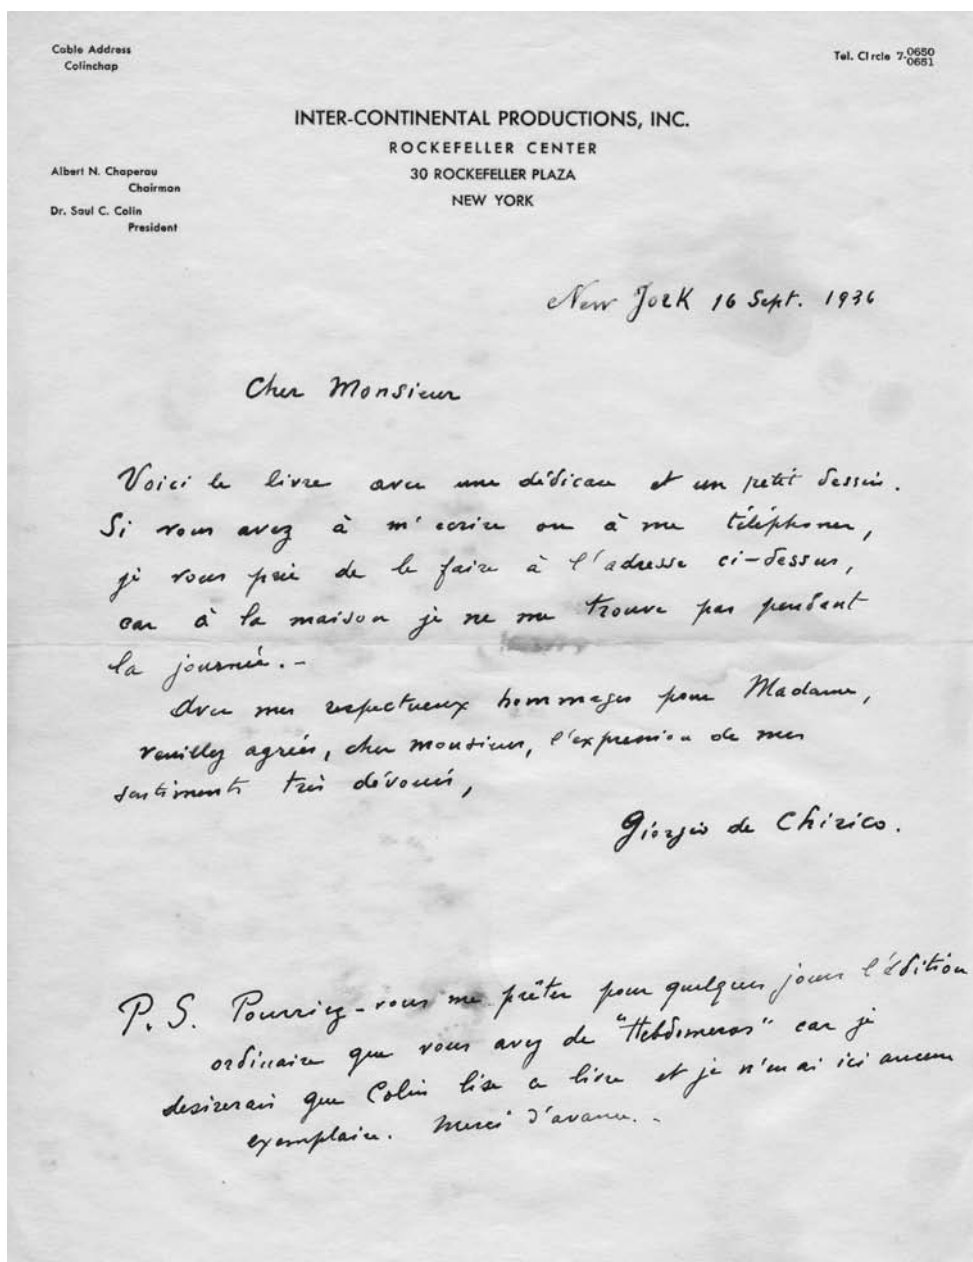 Cable Address
Colinchap
Tel. Circle 7-0650
0651
INTER-CONTINENTAL PRODUCTIONS, INC.
ROCKEFELLER CENTER
30 ROCKEFELLER PLAZA
NEW YORK
Albert N. Chaperau
Chairman
Dr. Saul C. Colin
President
New York 16 Sept. 1936
Cher Monsieur
Voici le livre avec une dédicace et un petit dessin.
Si vous avez à m'ecrire ou à me téléphoner,
je vous prie de le faire à l'adresse ci-dessus,
car à la maison je ne me trouve pas pendant
la journée.-
Avec mes respectueux hommages pour Madame,
veuillez agréer, cher monsieur, l'expression de mes
sentiments très dévoués,
Giorgio de Chirico.
P.S. Pourriez-vous me prêter pour quelques jours l'édition
ordinaire que vous avez de "Hebdomeros" car je
desirerais que Colin lise ce livre et je n'en ai ici aucun
exemplaire. Merci d'avance.-